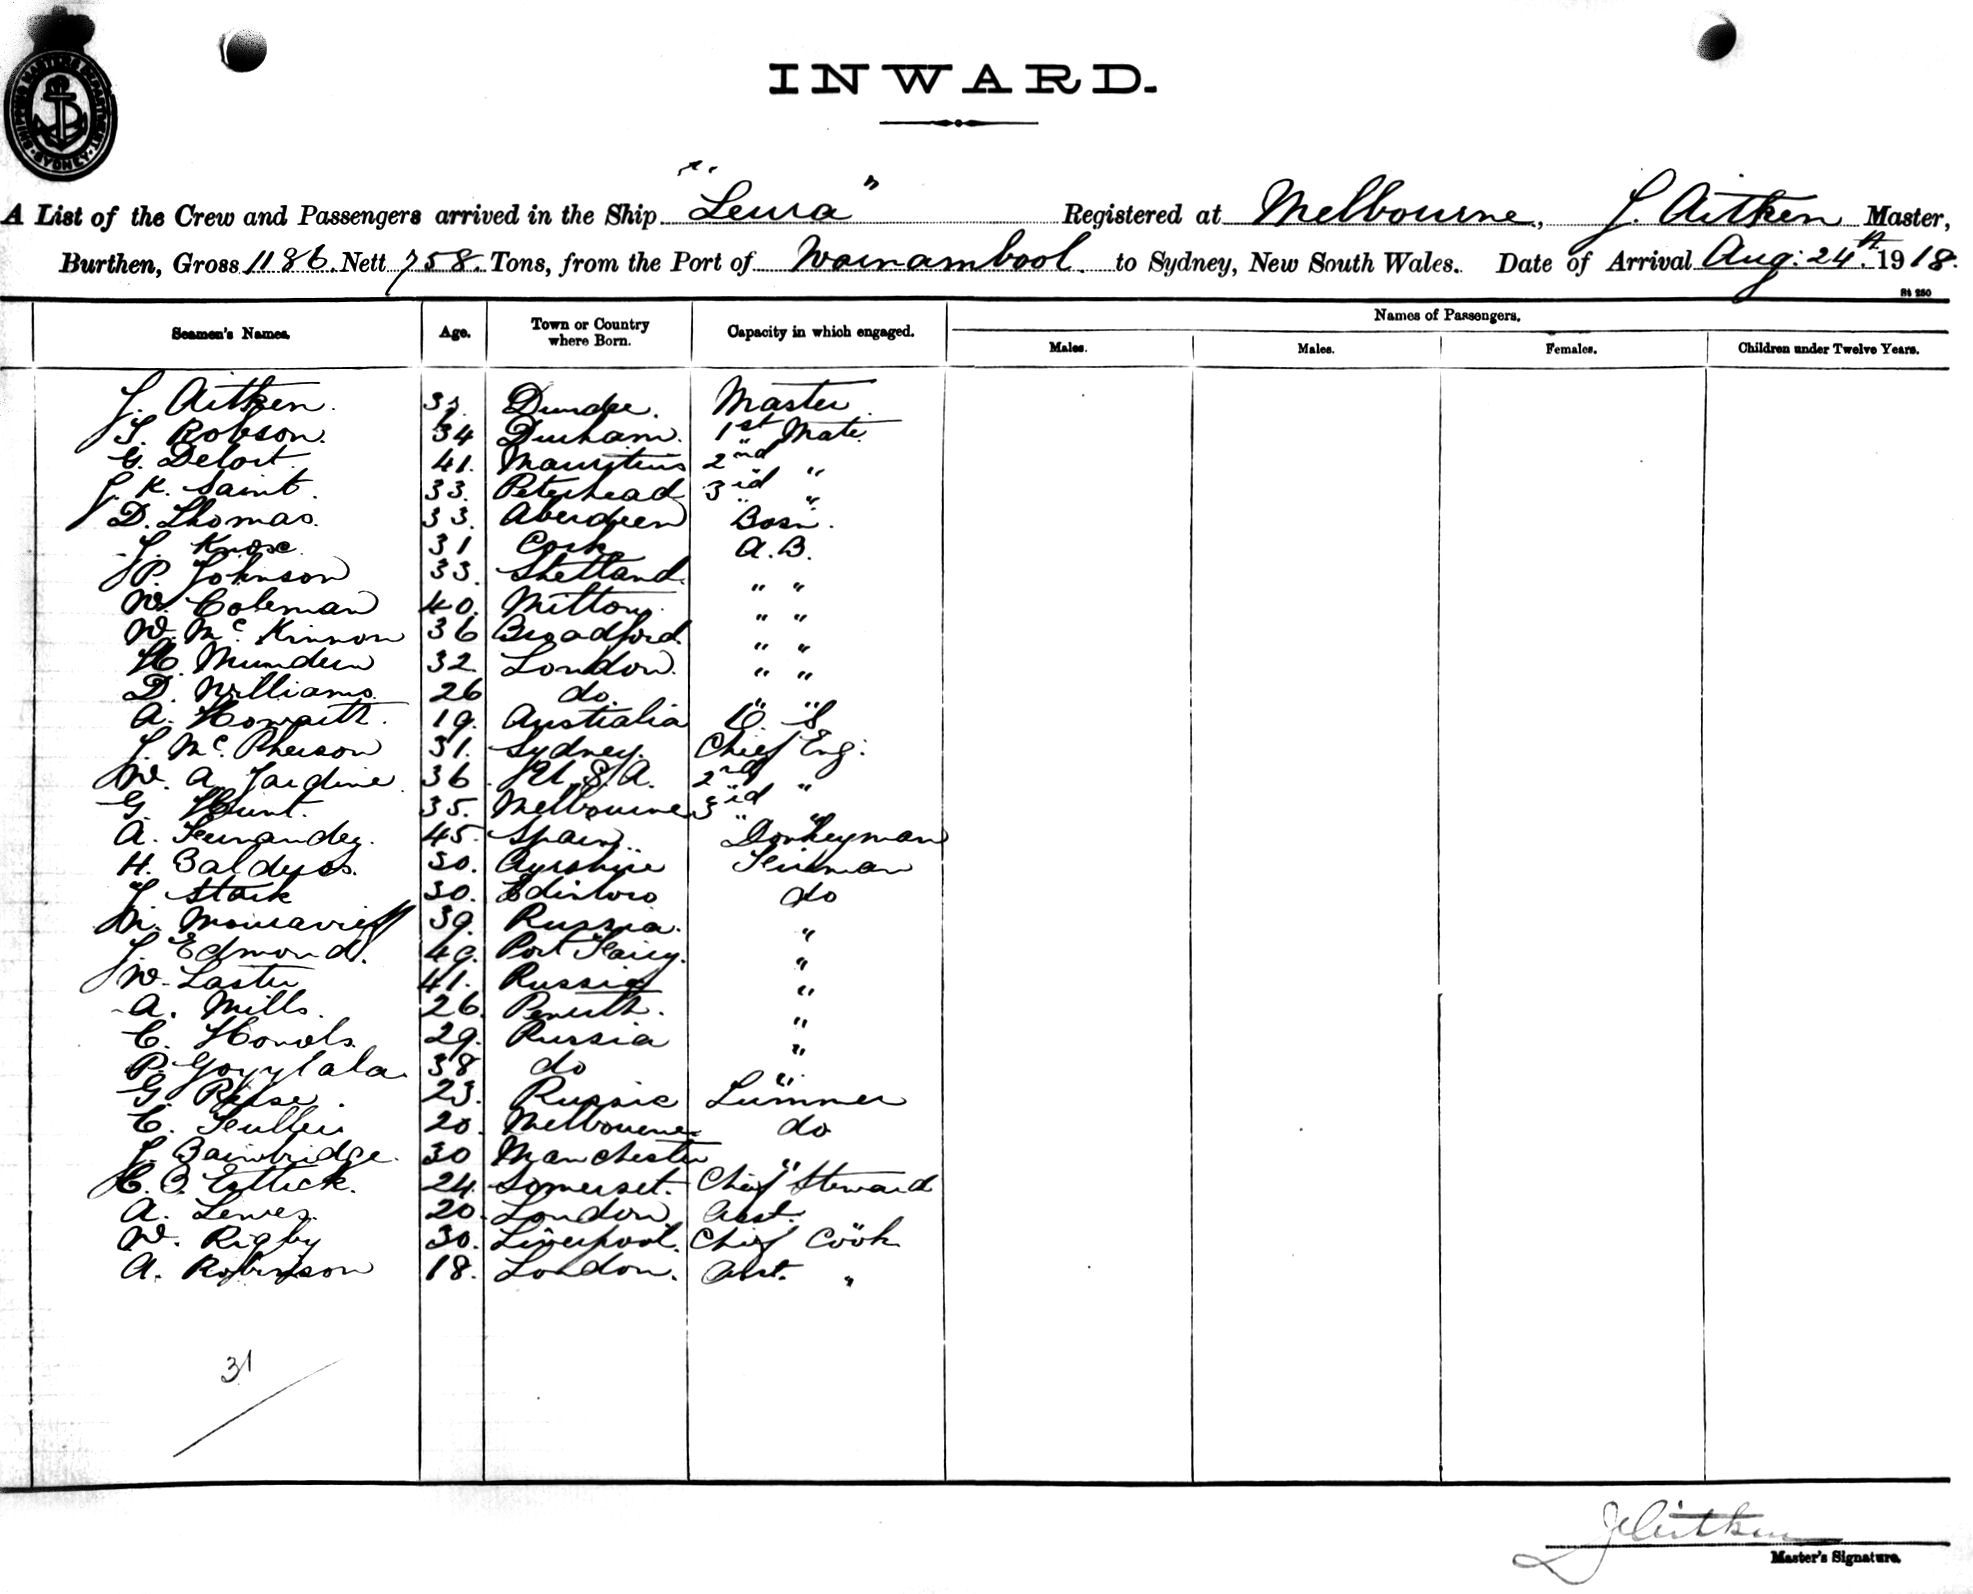 SHIPPING MASTER'S DEPARTMENT SYDNEY
INWARD.
A List of the Crew and Passengers arrived in the Ship "Leura" Registered at Melbourne, J. Aitken Master,
Burthen, Gross 1186. Nett 758. Tons, from the Port of Warnambool. to Sydney, New South Wales. Date of Arrival Aug: 24th. 1918.
St 250
Seamen's Names. Age. Town or Country where Born. Capacity in which engaged. Names of Passengers.
Males. Males. Females. Children under Twelve Years.
J. Aitken. Dundee. Master.
Robson. 34 Durham. 1st Mate
G. Delort. 41. Mauritius 2nd "
J. K. Saint. 33. Peterhead 3rd "
D. Thomas. 33. Aberdeen Bosn.
J. Knose. 31 Cork A.B.
P. Johnson 33. Shetland. " "
W. Coleman 40. Mitton. " "
W. Mc. Kinnon 36 Broadford. " "
H. Mundein 32 London. " "
D. Williams. 26 do. " "
A. Howarth. 19. Australia O. S
J. Mc. Pherson 31. Sydney. Chief Eng:
W. A. Jardine. 36. U.S.A. 2nd "
G. Hunt. 35. Melbourne 3rd "
A. Fernandez. 45. Spain. Donkeyman
H. Baldyos. 30. Ayrshire Fireman
J. Stark 30. Edinboro do
M. Mouravieff 39. Russia. "
J. Edmond. 49. Port Fairy. "
W. Laster 41. Russia "
A. Mills. 26. Penrith. "
C. Honols. 29. Russia "
P. Goyylala. 38 do "
G. 23. Russia Trimmer
C. 20. Melbourne do
J. Bainbridge. 30 Manchester "
C. B. Ettick. 24. Somerset. Chief Steward
A. Lewes. 20. London Asst. "
W. Rigby 30. Liverpool. Chief Cook
A. Robinson 18. London. Asst. "
31
J Aitken
Master's Signature.